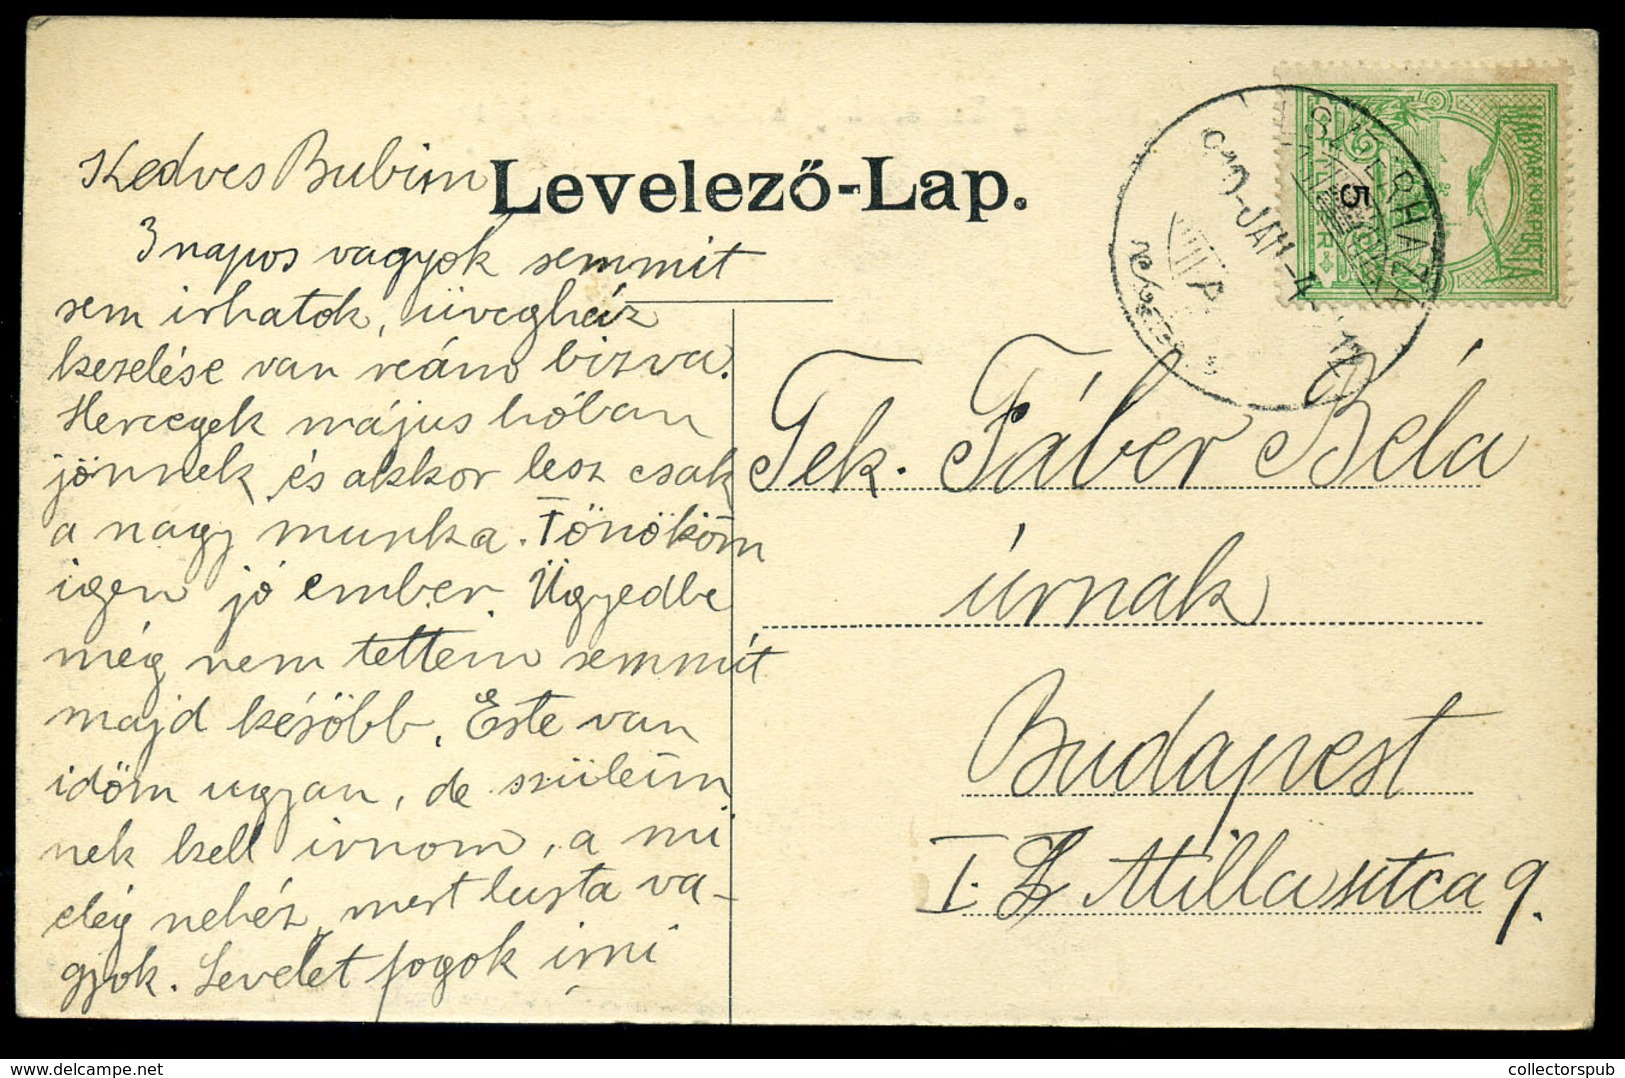 Levelező-Lap.
Kedves Bubim
3 napos vagyok semmit
sem irhatok, üvegház
kezelése van reám bizva.
Hercegek május hóban
jönnek és akkor lesz csak
a nagy munka. Főnököm
igen jó ember. Ügyedbe
még nem tettem semmit
majd később. Este van
időm ugyan, de szüleim
nek kell irnom, a mi
elég nehéz, mert lusta va-
gyok. Levelet fogok irni
MAGYAR KIR. POSTA
5
910 JAN
Tek. Fáber Béla
úrnak
Budapest
I. Attila utca 9.
collectorspub